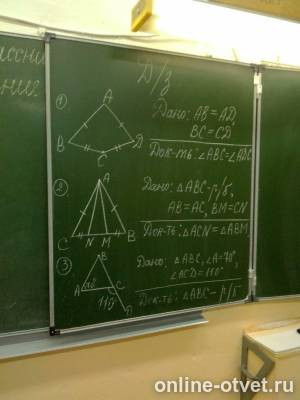 Д/з
1) A B C D
Дано: AB = AD,
BC = CD
Док-ть: ∠ABC = ∠ADC
2) A C N M B
Дано: △ABC – р/б,
AB = AC, BM = CN
Док-ть: △ACN = △ABM
3) B A 70° C 110° D
Дано: △ABC, ∠A = 70°,
∠ACD = 110°
Док-ть: △ABC – р/б
online-otvet.ru